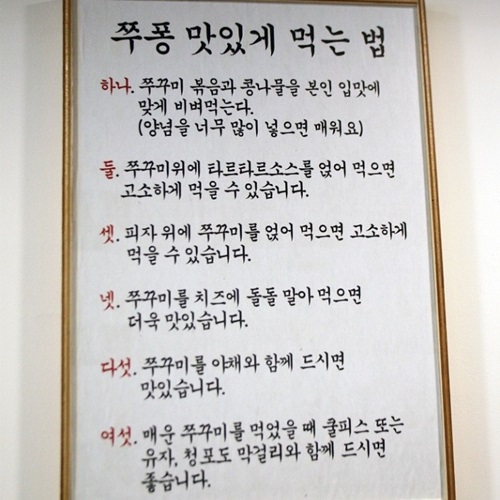 쭈퐁 맛있게 먹는 법
하나. 쭈꾸미 볶음과 콩나물을 본인 입맛에
맞게 비벼먹는다.
(양념을 너무 많이 넣으면 매워요)
둘. 쭈꾸미위에 타르타르소스를 얹어 먹으면
고소하게 먹을 수 있습니다.
셋. 피자 위에 쭈꾸미를 얹어 먹으면 고소하게
먹을 수 있습니다.
넷. 쭈꾸미를 치즈에 돌돌 말아 먹으면
더욱 맛있습니다.
다섯. 쭈꾸미를 야채와 함께 드시면
맛있습니다.
여섯. 매운 쭈꾸미를 먹었을 때 쿨피스 또는
유자, 청포도 막걸리와 함께 드시면
좋습니다.